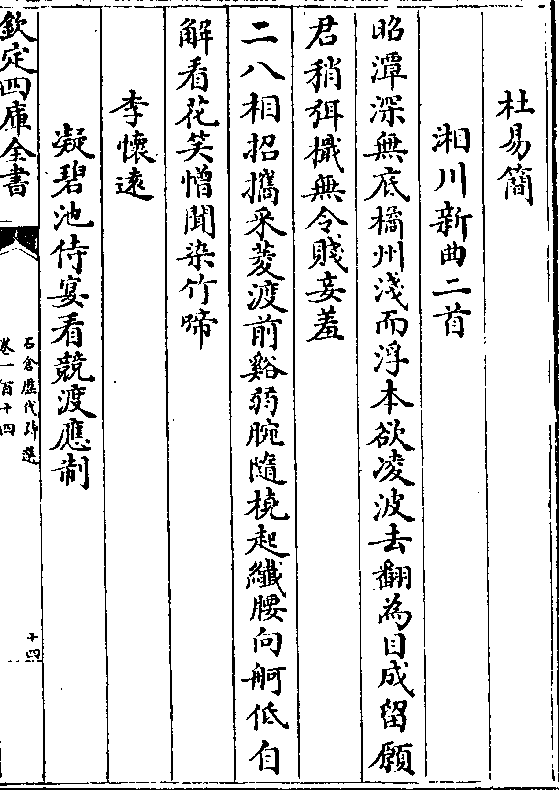 杜易簡
湘川新曲二首
昭潭深無底橘州淺而浮本欲凌波去翻為目成留願
君稍弭檝無令賤妾羞
二八相招攜采菱渡前谿弱腕隨橈起纖腰向舸低自
解看花笑憎聞染竹啼
李懷遠
凝碧池侍宴看競渡應制
欽定四庫全書
石倉歷代詩選
卷一百十四
十四